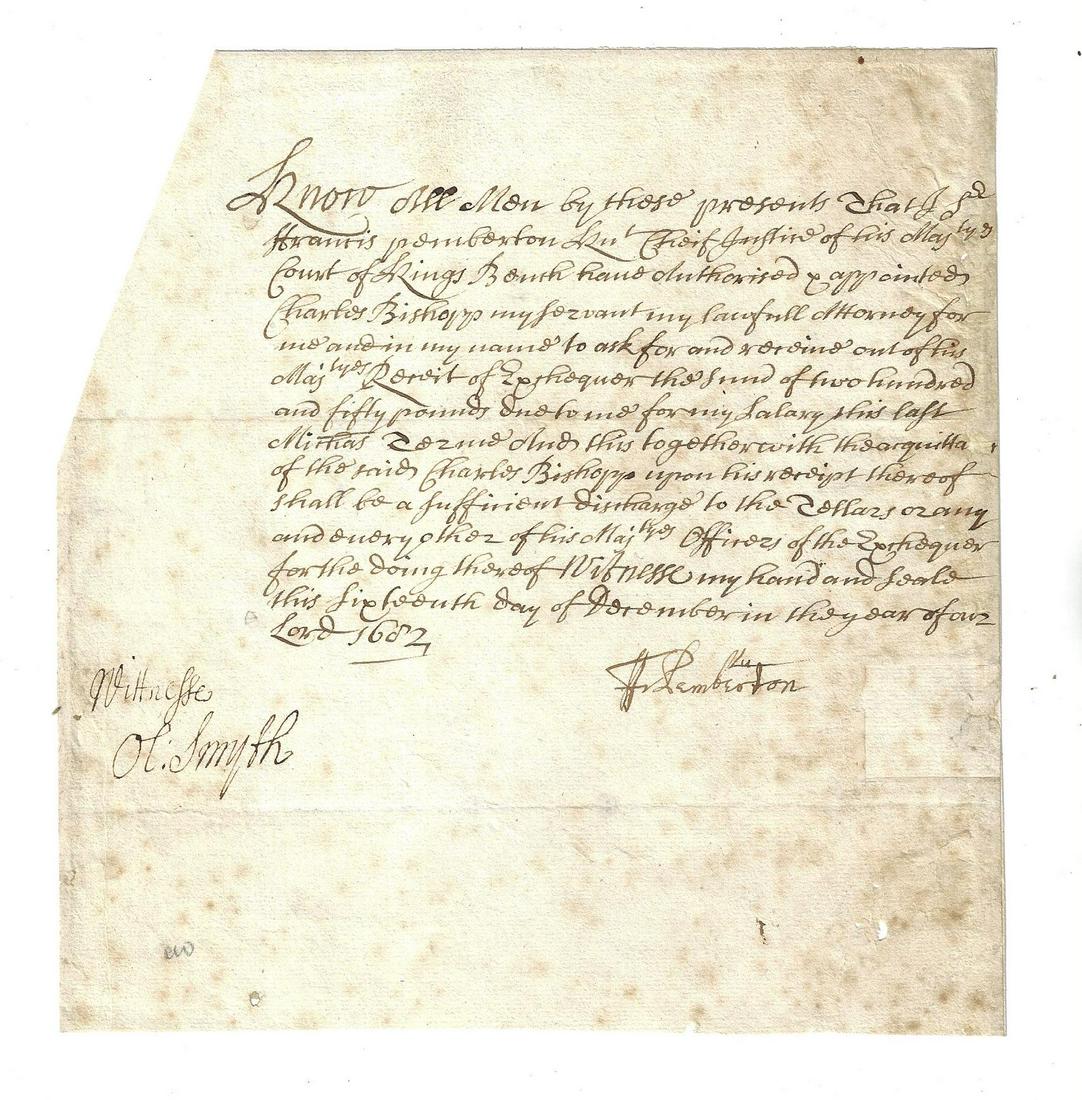 Know All Men by these presents That I Sr
ffrancis pemberton Knt Cheif Justice of his Majtyes
Court of Kings Bench haue Authorised & appointed
Charles Bishopp my servant my lawfull Attorney for
me and in my name to ask for and receiue out of his
Majtyes Receit of Exchequer the Sum̄ of two hundred
and fifty pounds due to me for my Salary this last
Michas Terme And this together with the acquitta
of the said Charles Bishopp upon his receipt thereof
shall be a sufficient discharge to the Tellars or any
and euery other of his Majtyes Officers of the Exchequer
for the doing thereof Witnesse my hand and Seale
this Sixteenth day of December in the year of our
Lord 1682
Wittnesse
Fr: Pemberton
Ol: Smyth